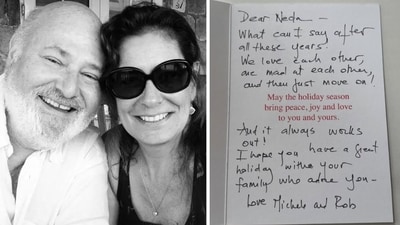 Dear Neda —
What can I say after
all these years.
We love each other,
are mad at each other,
and then just move on!
May the holiday season
bring peace, joy and love
to you and yours.
And it always works
out!
I hope you have a great
holiday with your
family who adore you —
Love Michele and Rob